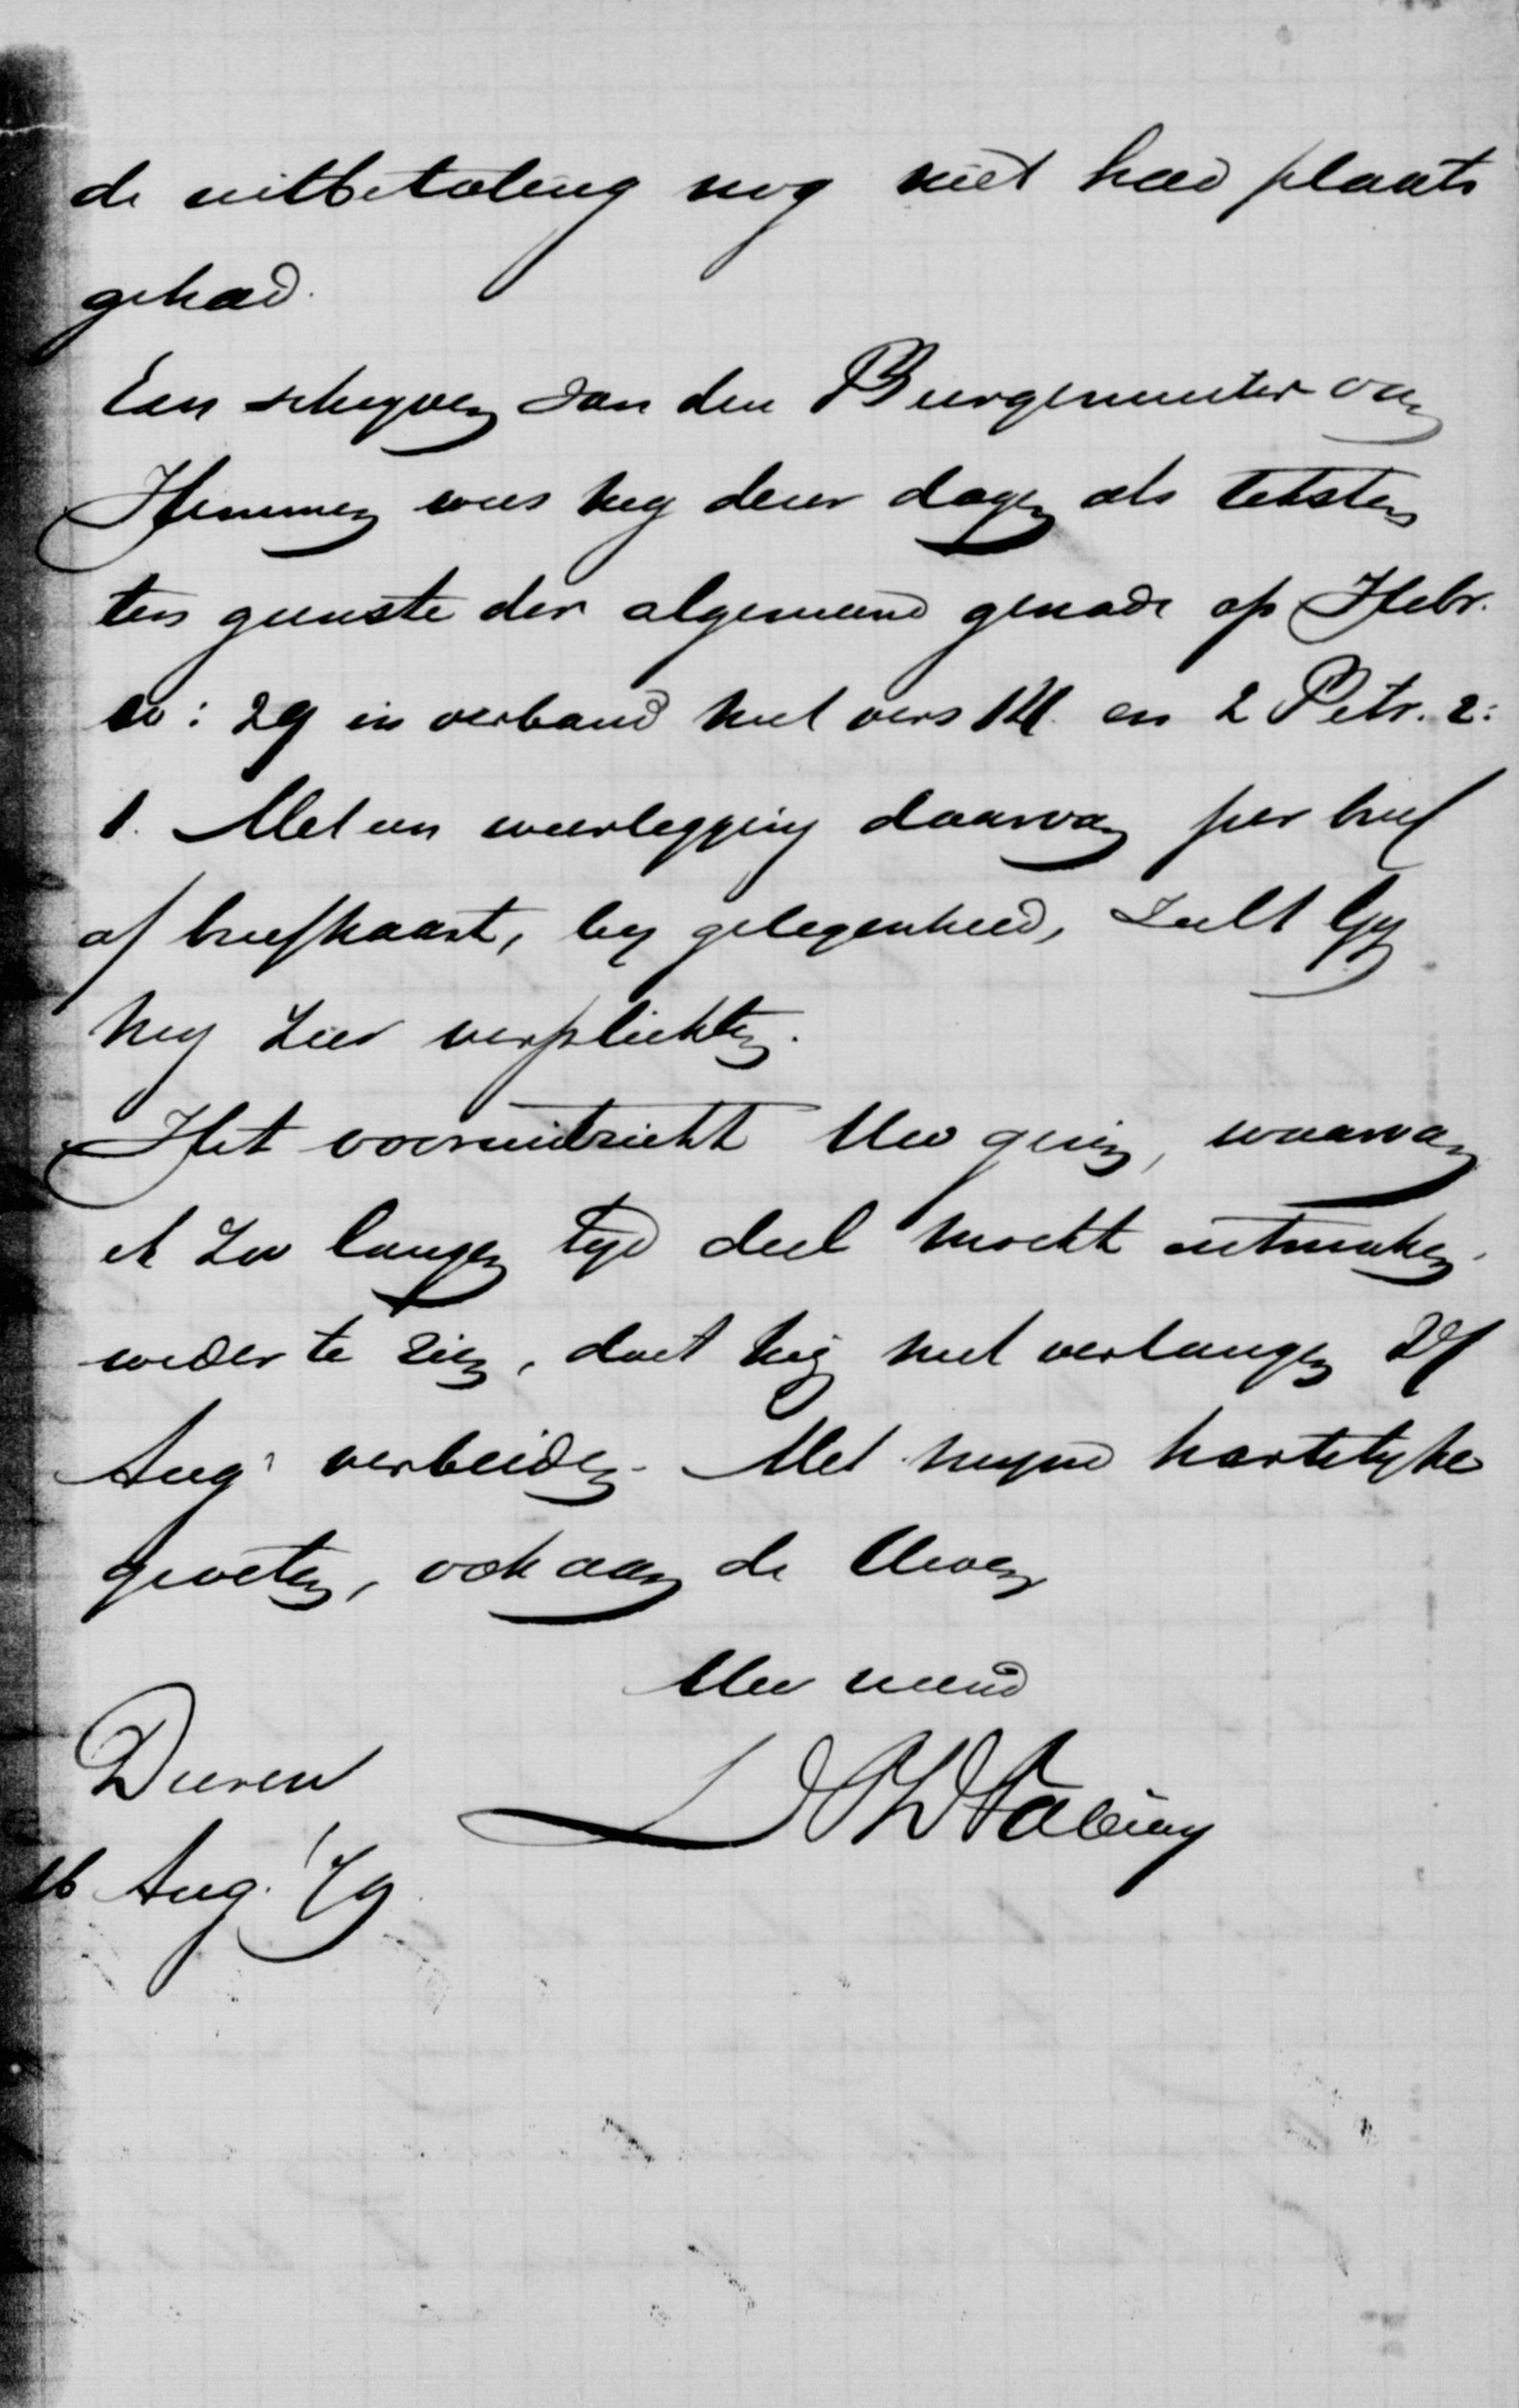 de uitbetaling nog niet had plaats
gehad.
Een schryven van den Burgemeester van
Hemmen wees my dezer dagen als teksten
ten gunste der algemeene genade op Hebr.
10: 29 in verband met vers 14 en 2 Petr. 2:
1. Met een weerlegging daarvan per brief
of briefkaart, by gelegenheid, zult Gy
my zeer verplichten.
Het vooruitzicht Uw gezin, waarvan
ik zoo langen tyd deel mocht uitmaken
weder te zien, doet my met verlangen 27
Aug. verbeiden. Met myne hartelyke
groeten, ook aan de Uwen
Uw vriend
Dieren
16 Aug. '79